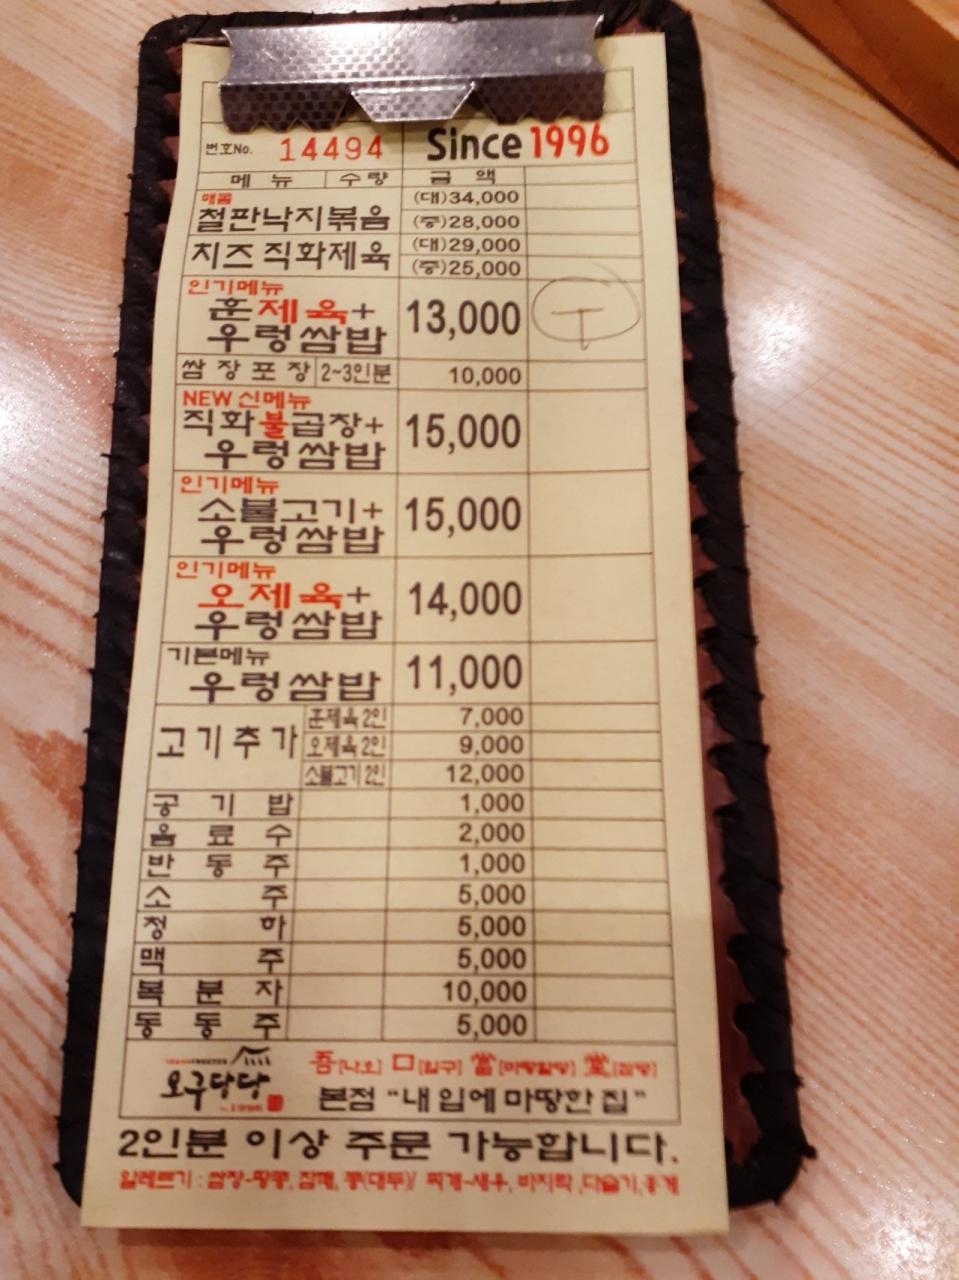 번호No. 14494 Since 1996
메뉴 수량 금액
매콤
철판낙지볶음 (대)34,000
(중)28,000
치즈 직화제육 (대)29,000
(중)25,000
인기메뉴
훈제육+
우렁쌈밥 13,000 T
쌈장포장 2~3인분 10,000
NEW 신메뉴
직화불곱창+
우렁쌈밥 15,000
인기메뉴
소불고기+
우렁쌈밥 15,000
인기메뉴
오제육+
우렁쌈밥 14,000
기본메뉴
우렁쌈밥 11,000
고기추가 훈제육2인 7,000
오제육2인 9,000
소불고기2인 12,000
공기밥 1,000
음료수 2,000
반동주 1,000
소주 5,000
청하 5,000
맥주 5,000
복분자 10,000
동동주 5,000
오구당당 吾[나오] 口[입구] 當[마땅할당] 堂[집당]
~1996 본점 "내 입에 마땅한 집"
2인분 이상 주문 가능합니다.
알레르기 : 쌈장-땅콩, 참깨, 콩(대두)/ 찌개-새우, 바지락, 다슬기, 홍게